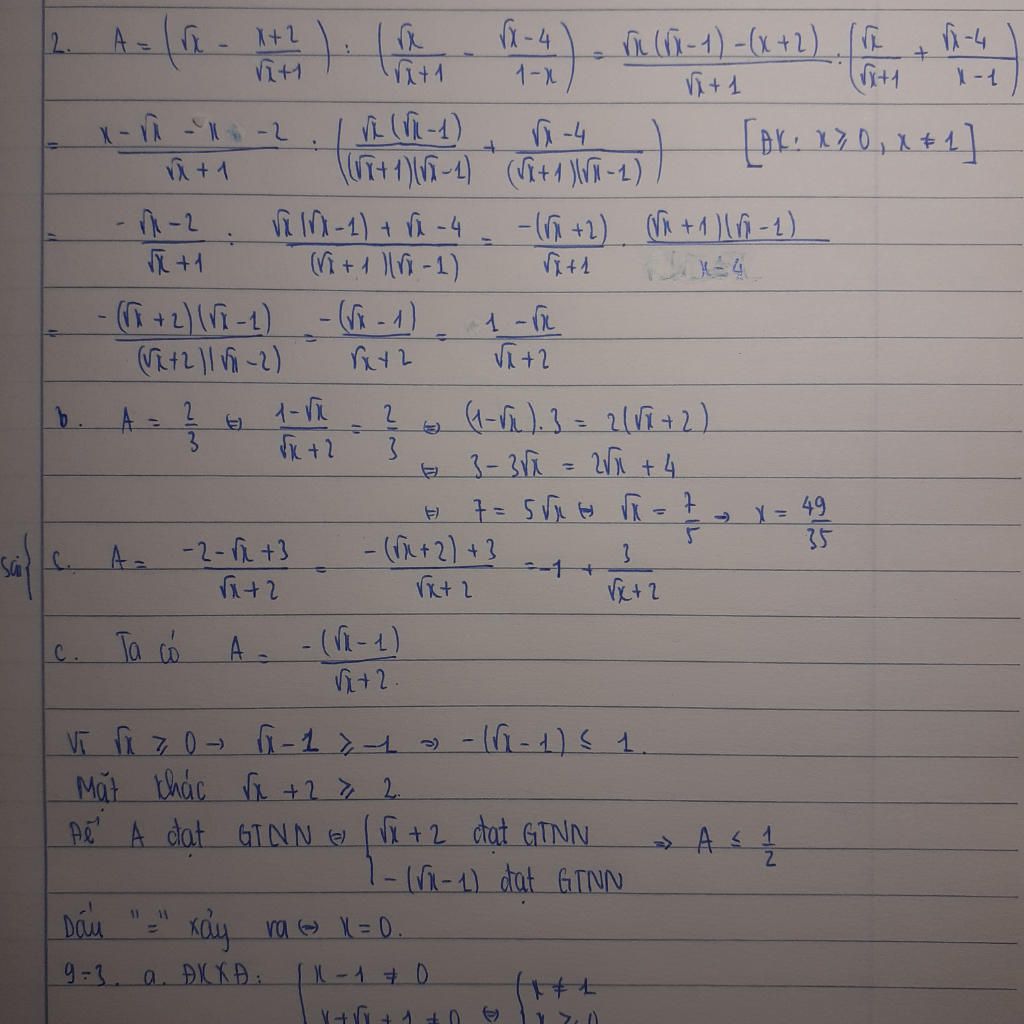 2. A = (√x - (x+2)/(√x+1)) : (√x/(√x+1) - (√x-4)/(1-x)) = (√x(√x-1) - (x+2))/(√x+1) : (√x/(√x+1) + (√x-4)/(x-1))
= (x - √x - x - 2)/(√x+1) : (√x(√x-1)/((√x+1)(√x-1)) + (√x-4)/((√x+1)(√x-1))) [ĐK: x ≥ 0, x ≠ 1]
= (-√x-2)/(√x+1) : (√x(√x-1) + √x-4)/((√x+1)(√x-1)) = -(√x+2)/(√x+1) . (√x+1)(√x-1)/(x-4)
= -(√x+2)(√x-1)/((√x+2)(√x-2)) = -(√x-1)/(√x+2) = (1-√x)/(√x+2)
b. A = 2/3 ⇔ (1-√x)/(√x+2) = 2/3 ⇔ (1-√x).3 = 2(√x+2)
⇔ 3-3√x = 2√x + 4
⇔ 7 = 5√x ⇔ √x = 7/5 → x = 49/35
Sai { c. A = (-2-√x+3)/(√x+2) = (-(√x+2)+3)/(√x+2) = -1 + 3/(√x+2)
c. Ta có A = -(√x-1)/(√x+2).
Vì √x ≥ 0 → √x-1 ≥ -1 ⇒ -(√x-1) ≤ 1.
Mặt khác √x + 2 ≥ 2.
Để A đạt GTNN ⇔ { √x+2 đạt GTNN ⇒ A ≤ 1/2
-(√x-1) đạt GTNN
Dấu "=" xảy ra ⇔ x=0.
9-3. a. ĐKXĐ: { x-1 ≠ 0 { x ≠ 1
x+√x+1 ≠ 0 ⇔ x ≥ 0